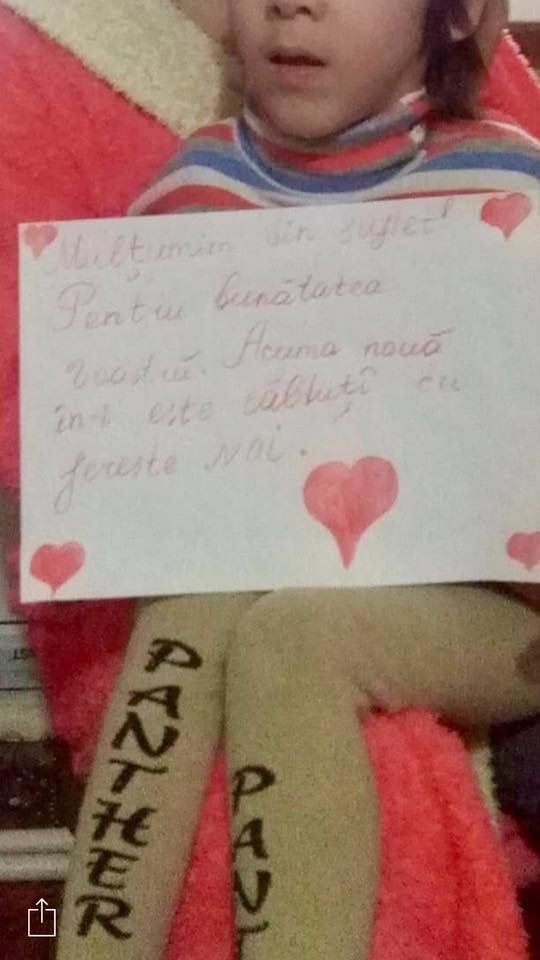 Mulțumim din suflet!
Pentru bunătatea
voastră. Acuma nouă
în-i este călduți cu
ferește NOI.
PANTHER
PANT